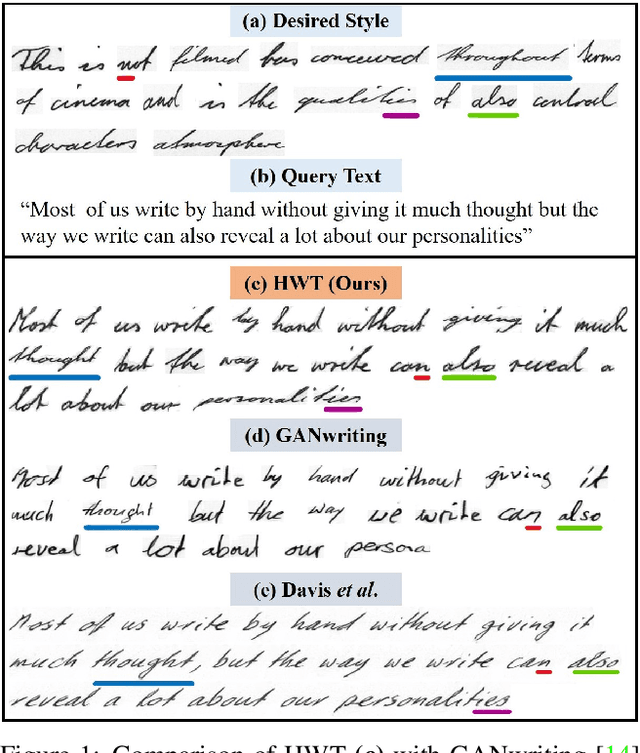 (a) Desired Style
This is not filmed has conceived throughout terms
of cinema and is the qualities of also central
characters atmosphere
(b) Query Text
“Most of us write by hand without giving it much thought but the
way we write can also reveal a lot about our personalities”
(c) HWT (Ours)
Most of us write by hand without giving it much
thought but the way we write can also reveal a
lot about our personalities
(d) GANwriting
Most of us write by hand without giving it
much thought but the way we write can also
reveal a lot about our persona
(e) Davis et al.
Most of us write by hand without giving it
much thought, but the way we write can also
reveal a lot about our personalities
Figure 1: Comparison of HWT (c) with GANwriting [14]